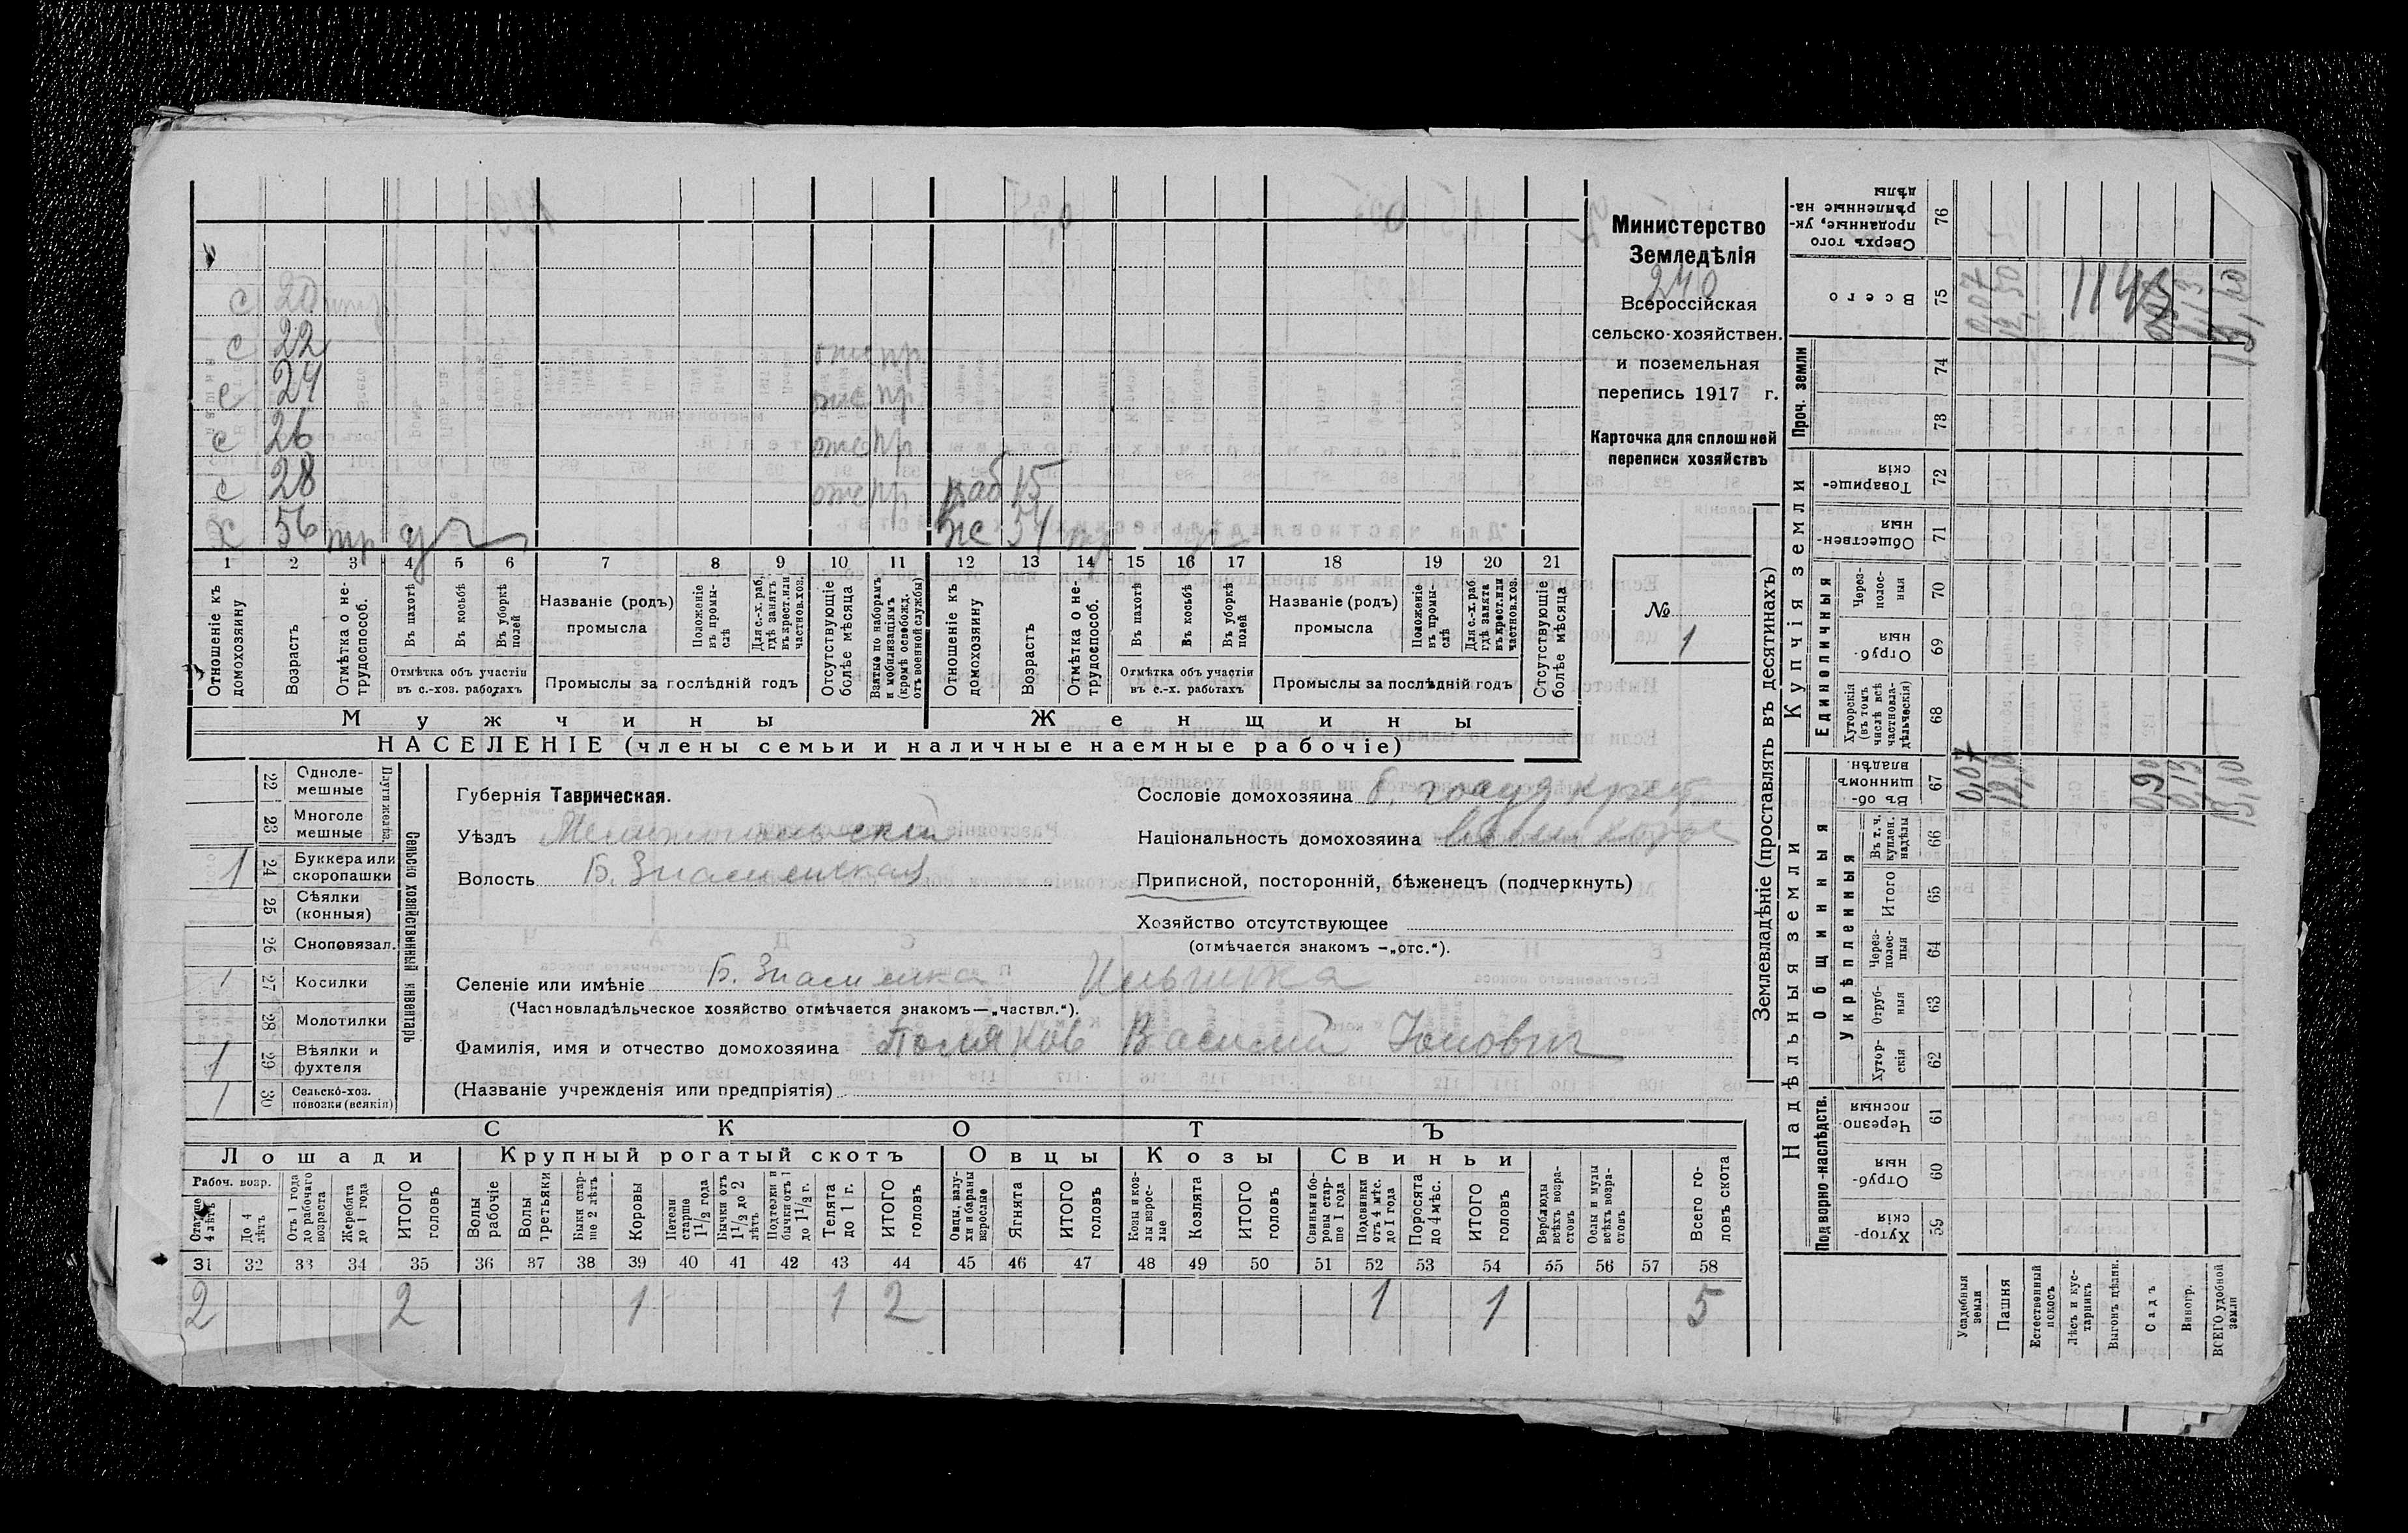 Министерство
Земледѣлія
240
Всероссійская
сельско-хозяйствен.
и поземельная
перепись 1917 г.
Карточка для сплошной
переписи хозяйствъ
№
1
с 20
с 22
с 24
с 26
с 28 раб 15
х 56 тр же 54
1 2 3 4 5 6 7 8 9 10 11 12 13 14 15 16 17 18 19 20 21
Отношеніе къ домохозяину
Возрастъ
Отмѣтка о не-трудоспособ.
Въ пахотѣ
Въ косьбѣ
Въ уборкѣ полей
Отмѣтка объ участіи въ с.-хоз. работахъ
Названіе (родъ) промысла
Положеніе въ промы-слѣ
Для с.-х. раб. гдѣ занятъ въ крест. или частнов. хоз.
Промыслы за послѣдній годъ
Отсутствующіе болѣе мѣсяца
Взятые по наборамъ и мобилизаціямъ (кромѣ освобожд. отъ военной службы)
Отношеніе къ домохозяину
Возрастъ
Отмѣтка о не-трудоспособ.
Въ пахотѣ
Въ косьбѣ
Въ уборкѣ полей
Отмѣтка объ участіи въ с.-х. работахъ
Названіе (родъ) промысла
Положеніе въ промы-слѣ
Для с.-х. раб. гдѣ занята въ крест. или частнов. хоз.
Промыслы за послѣдній годъ
Отсутствующіе болѣе мѣсяца
Мужчины
Женщины
НАСЕЛЕНІЕ (члены семьи и наличные наемные рабочіе)
Сельско хозяйственный инвентарь
22 Одноле-мешные
23 Многоле мешные
1 24 Буккера или скоропашки
25 Сѣялки (конныя)
26 Сноповязал.
1 27 Косилки
28 Молотилки
1 29 Вѣялки и фухтеля
1 30 Сельско-хоз. повозки (всякія)
Губернія Таврическая.
Уѣздъ Мелитопольский
Волость Б. Знаменская
Сословіе домохозяина б. госуд крест
Національность домохозяина
Приписной, посторонній, бѣженецъ (подчеркнуть)
Хозяйство отсутствующее
(отмѣчается знакомъ —„отс.“).
Селеніе или имѣніе Б. Знаменка
(Частновладѣльческое хозяйство отмѣчается знакомъ—„частвл.“).
Фамилія, имя и отчество домохозяина Поляков Василий
(Названіе учрежденія или предпріятія)
СКОТЪ
Лошади
Крупный рогатый скотъ
Овцы
Козы
Свиньи
Рабоч. возр.
Старше 4 лѣтъ
До 4 лѣтъ
Отъ 1 года до рабочаго возраста
Жеребята до 1 года
ИТОГО головъ
Волы рабочіе
Волы третьяки
Быки стар-ше 2 лѣтъ
Коровы
Нетели старше 1 1/2 года
Бычки отъ 1 1/2 до 2 лѣтъ
Подтелки и бычки отъ 1 до 1 1/2 г.
Телята до 1 г.
ИТОГО головъ
Овцы, валу-хи и бараны взрослые
Ягнята
ИТОГО головъ
Козы и коз-лы взрос-лые
Козлята
ИТОГО головъ
Свиньи и бо-ровы стар-ше 1 года
Подсвинки отъ 4 мѣс. до 1 года
Поросята до 4 мѣс.
ИТОГО головъ
Верблюды всѣхъ возра-стовъ
Ослы и мулы всѣхъ возра-стовъ
Всего го-ловъ скота
31 32 33 34 35 36 37 38 39 40 41 42 43 44 45 46 47 48 49 50 51 52 53 54 55 56 57 58
2 2 1 1 2 1 1 5
Землевладѣніе (проставлять въ десятинахъ)
Купчія земли
Надѣльныя земли
Проч. земли
Единоличныя
Общинныя
Укрѣпленныя
Подворно-наслѣдств.
Сверхъ того проданные, ук-рѣпленные на-дѣлы 76
Всего 75
74
73
Товарище-скія 72
Обществен-ныя 71
Через-полос-ныя 70
Отруб-ныя 69
Хуторскія (въ томъ числѣ всѣ частновла-дѣльческія) 68
Въ об-щинномъ владѣн. 67
Въ т. ч. куплен. надѣлы 66
Итого 65
Через-полос-ныя 64
Отруб-ныя 63
Хутор-скія 62
Черезпо-лосныя 61
Отруб-ныя 60
Хутор-скія 59
Усадебныя земли 0,07 0,07
Пашня 12,50
Естественный покосъ
Лѣсъ и кус-тарникъ
Выгонъ цѣлин.
Садъ 0,90
Виногр. 0,13
ВСЕГО удобной земли 13,60